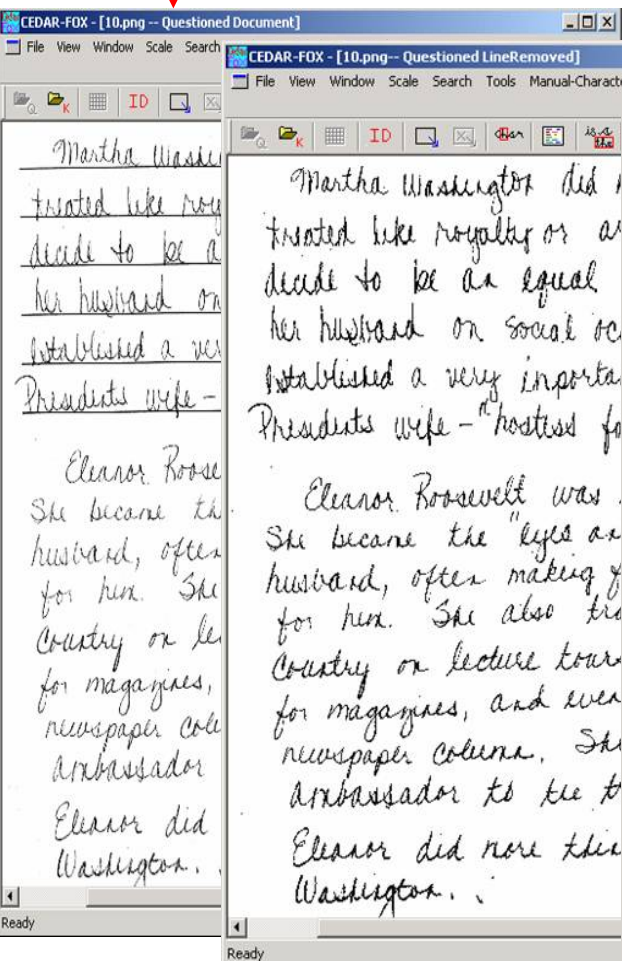 CEDAR-FOX - [10.png -- Questioned Document]
File View Window Scale Search
Q K ID
Martha Washi
treated like roy
decide to be a
her husband on
established a ver
Presidents wife -
Eleanor Roose
She became th
husband, often
for him. She
Country on le
for magazines,
newspaper colu
ambassador
Eleanor did
Washington.
Ready
CEDAR-FOX - [10.png-- Questioned LineRemoved]
File View Window Scale Search Tools Manual-Characte
Q K ID
Martha Washington did
treated like royalty or a
decide to be an equal
her husband on social oc
established a very importa
Presidents wife - "hostess fo
Eleanor Roosevelt was
She became the "eyes an
husband, often making
for him. She also tra
Country on lecture tours
for magazines, and even
newspaper column. She
ambassador to the
Eleanor did more thin
Washington.
Ready